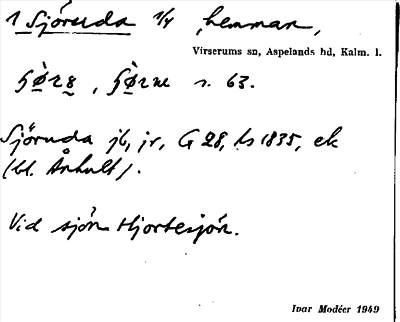 1 Sjöruda 1/4 hemman,
Virserums sn, Aspelands hd, Kalm. l.
n. 63.
Sjöruda jb, jr, G 28, ls 1835, ek
(bl. Århult).
Vid sjön Hjortesjön.
Ivar Modéer 1949